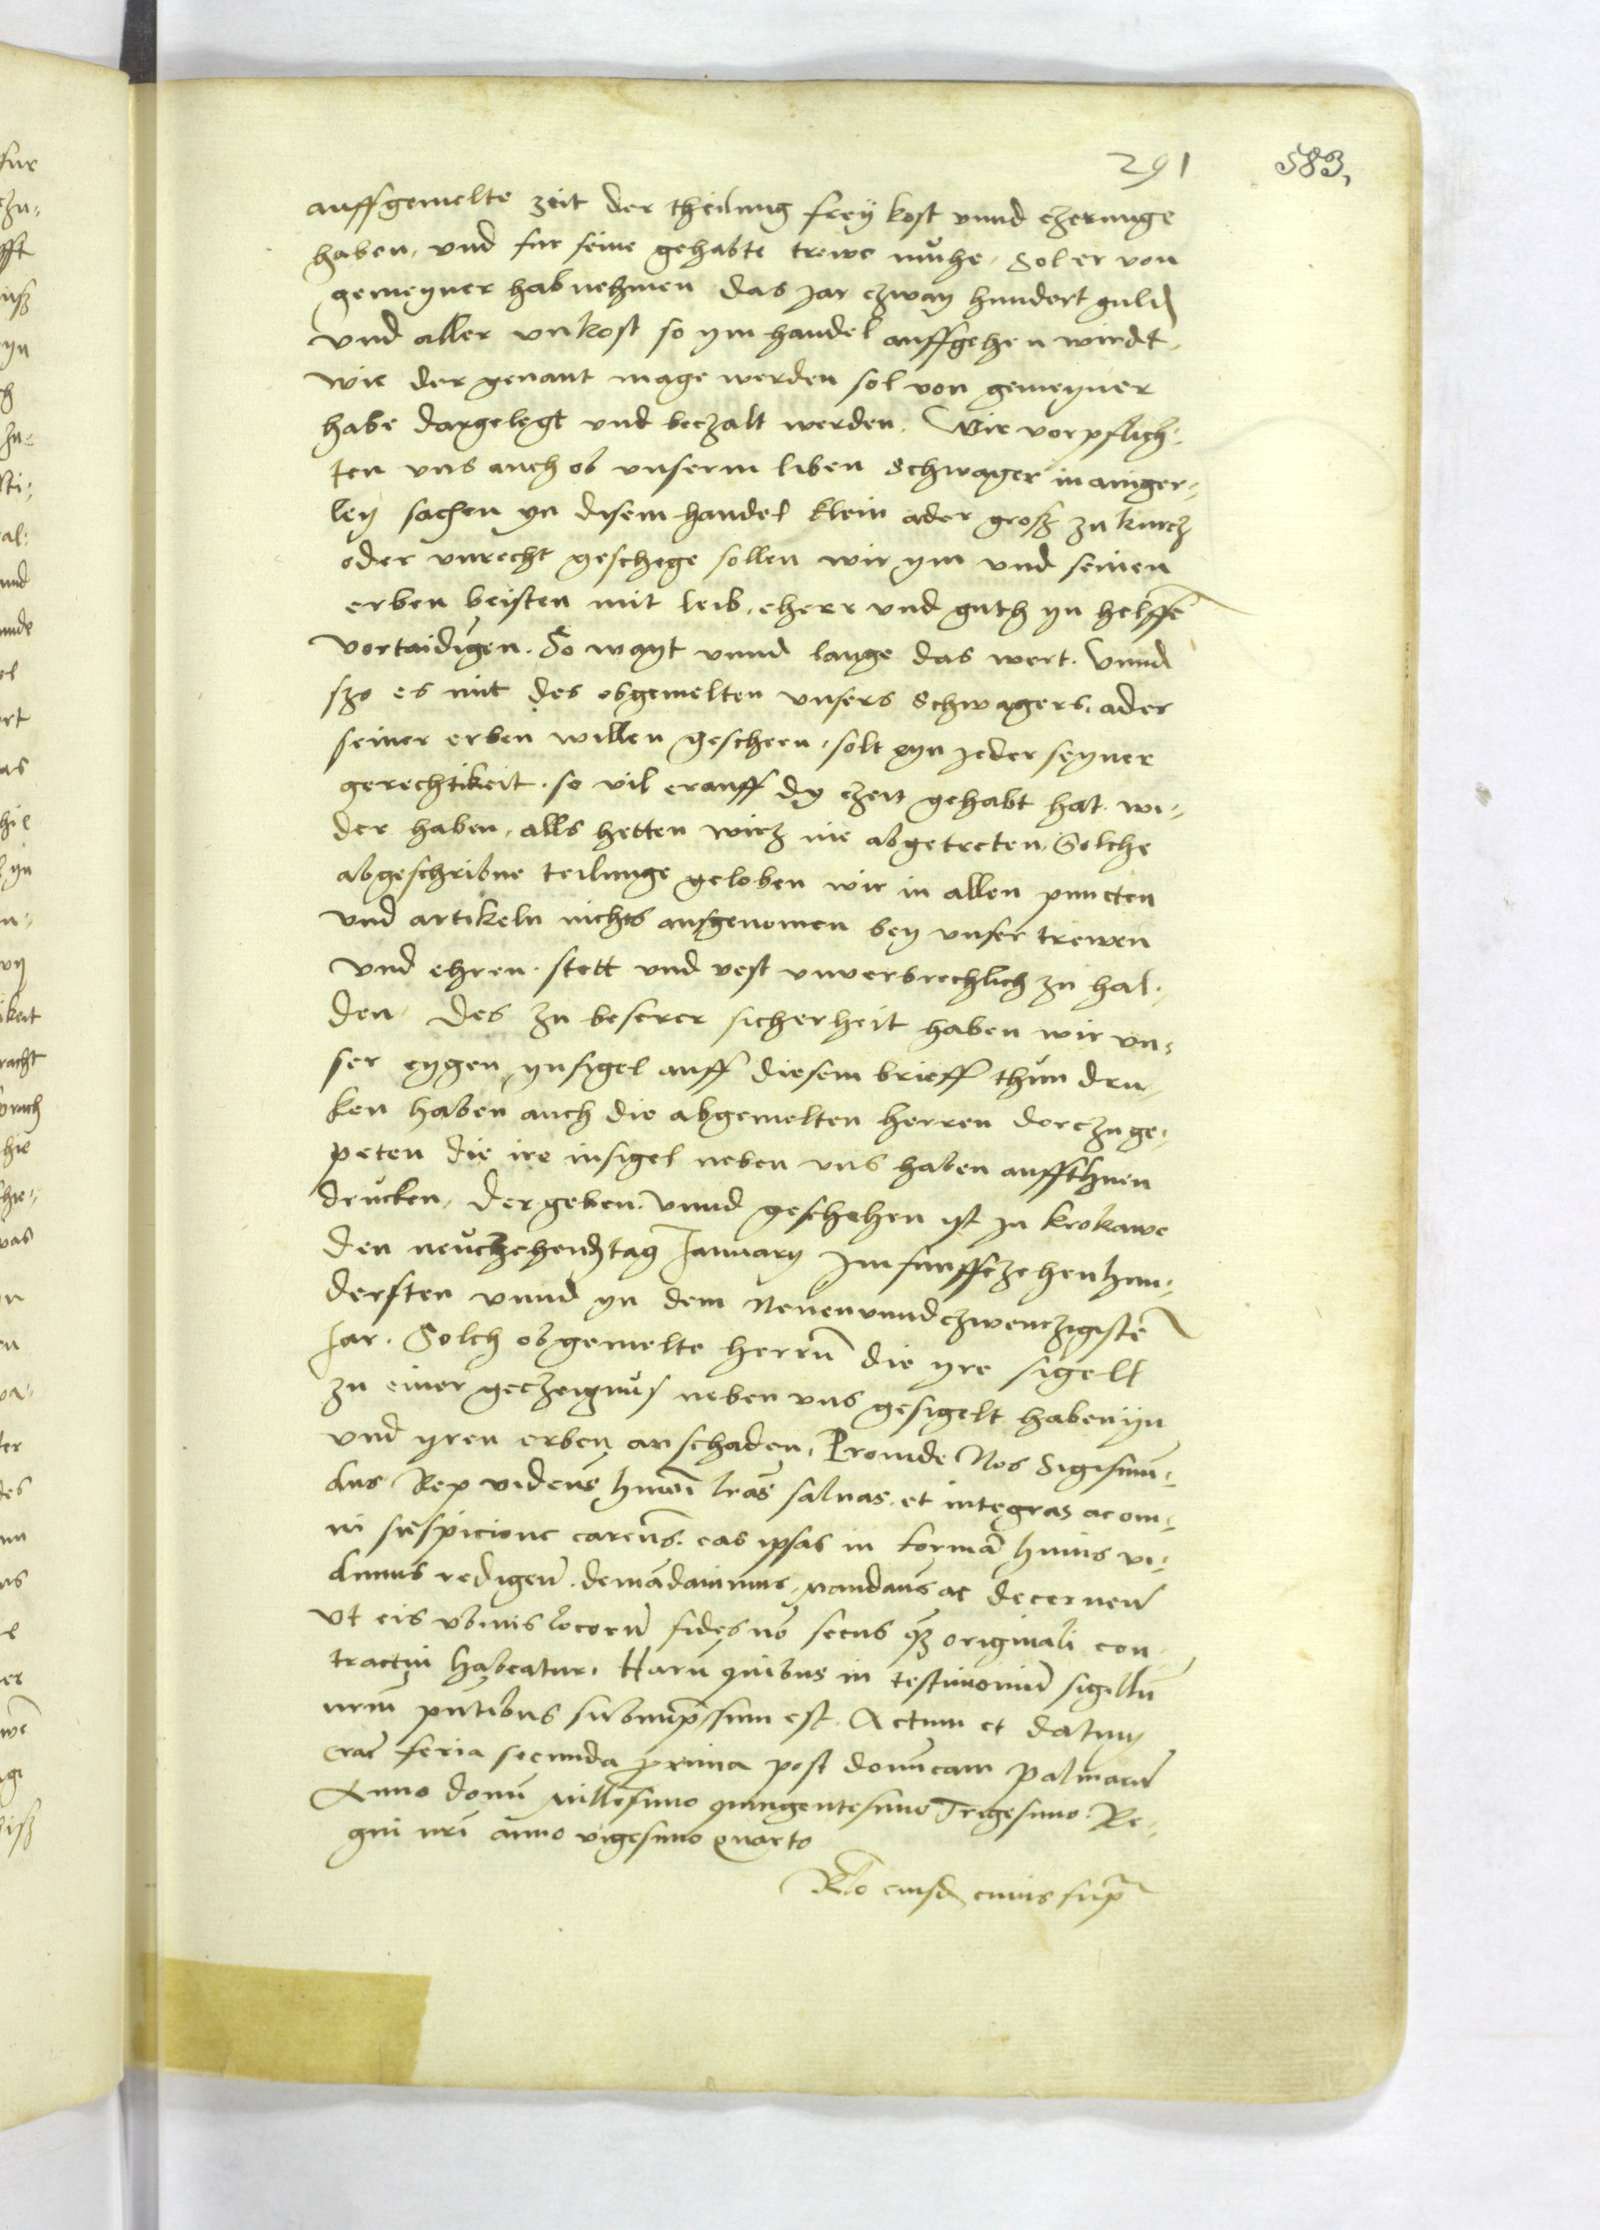 291 583,
auffgemelte zeit der theilung frey kost vnnd czerunge
haben, vnd fur seine gehabte trewe muhe, Sol er von
gemeyner hab nehmen das jar czway hundert guld
vnd aller vnkost so ym handel auffgehen wirdt,
wie der genant mage werden sol von gemeyner
habe dargelegt vnd beczalt werden. Wir vorpflich-
ten vns auch ob vnserm liben Schwager in ainger-
ley sachen yn disem handel klein ader grosz zu kurcz
oder vnrecht geschege sollen wir ym vnd seinen
erben beisten mit leib, eherr vnd guth yn helffe
vortaidigen. So wayt vnnd lange das wert. Vnnd
szo es nit des obgemelten vnsers Schwagers, ader
seiner erben willen gescheen, solt eyn jeder seyner
gerechtikeit, so vil er auff dy czeit gehabt hat, wi-
der haben, alls hetten wirz nie abgetreten. Solche
abgeschribne teilunge geloben wir in allen puncten
vnd artikeln nichts ausgenomen bey vnser trewen
vnd ehren, stett vnd vest vnverbrechlich zu hal-
den, Des zu beserer sicherheit haben wir vn-
ser eygen ynsigel auff diesem brieff thun dru-
ken haben auch die abgemelten herren dorczu ge-
peten die ire insigel neben vns haben auffthuen
drucken, Der geben vnnd geschehen ist zu krokawe
den neuczehend tag January Im funffczehenhun-
dersten vnnd yn dem Neuenvnndczwenczigiste
Jar. Solch obgemelte herrn die yre sigell
zu einer geczeignus neben vns gesigelt haben yn
vnd yren erben an schaden, Proinde Nos Sigismu-
dus Rex videns hmoi lras saluas, et integras ac om-
ni suspicione carens, eas ipsas in forma huius vi-
dimus redigen demadauimus, mandans ac decernen
vt eis vbiuis locoru fides no secus q3 originali con
tractui habeatur, Haru quibus in testimoniu sigillu
nrm pntibus subimpssum est. Actum et datum
crac feria secunda prxima post domicam palmaru
Anno domi Millesimo quingentesimo Trigesimo. Re-
gni nri anno vigesimo quarto
Rlo eiusd cuius supra